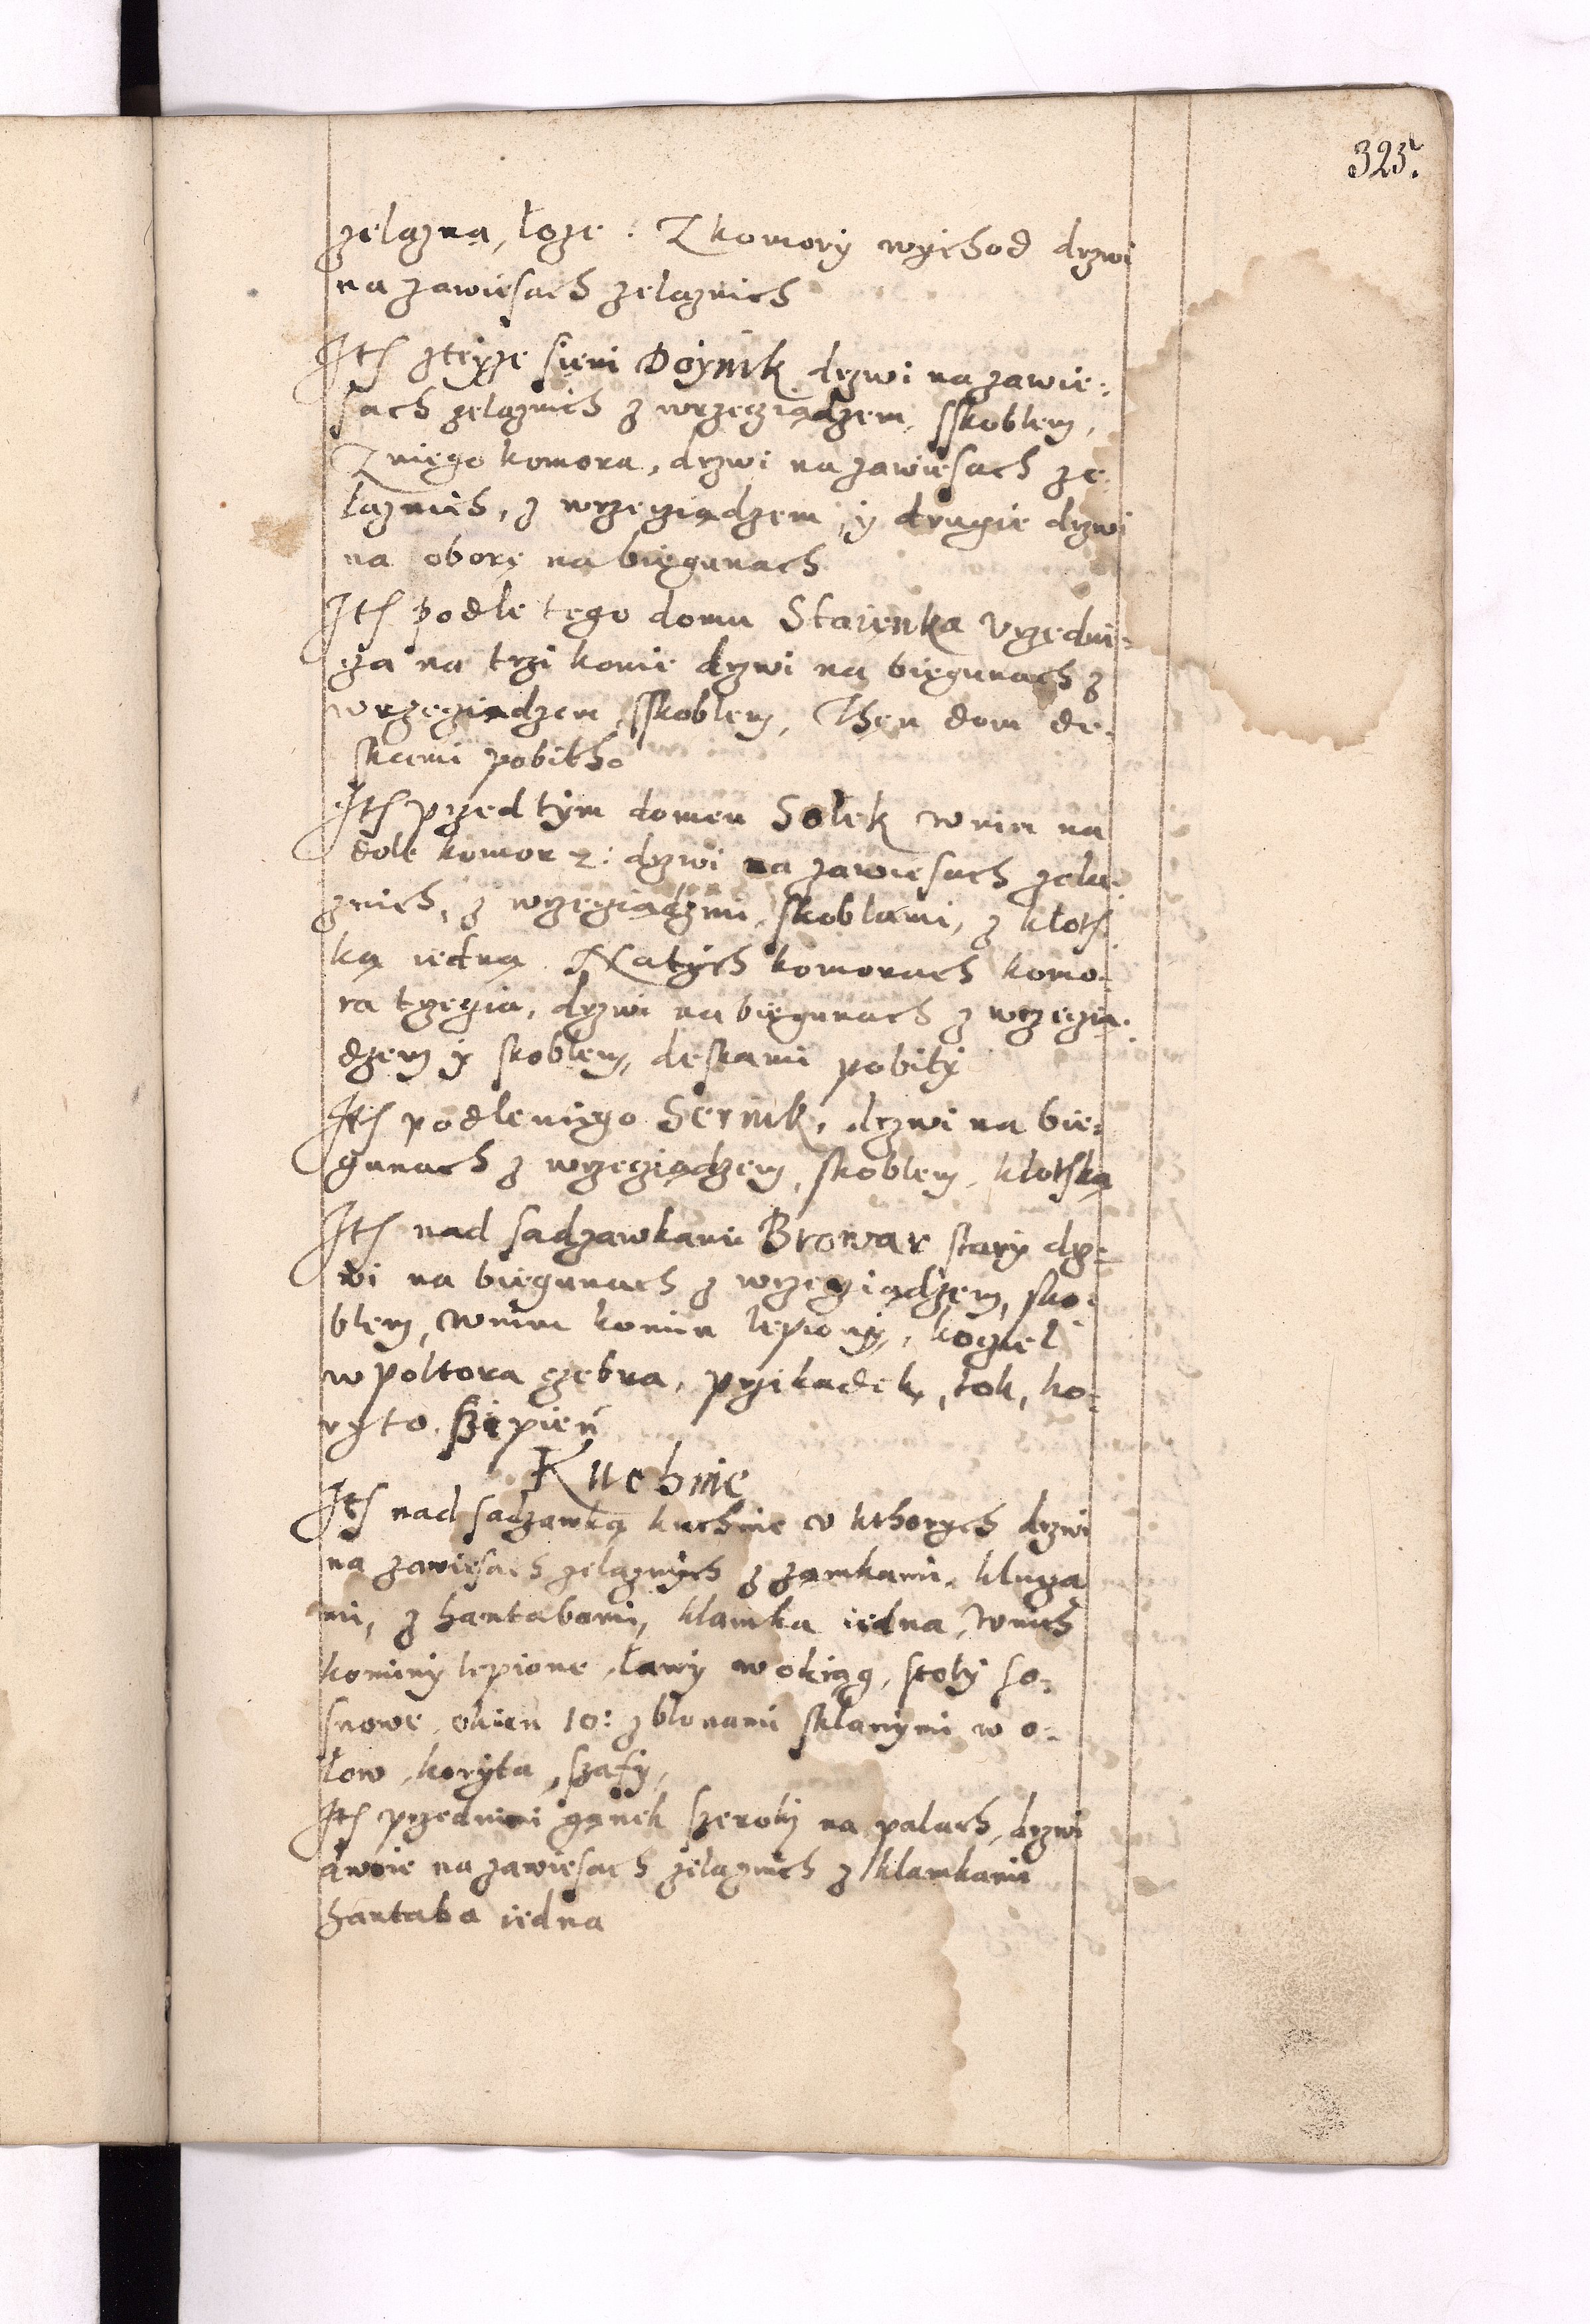 325.
zelazna, łoze. Z komory wychod drzwi
na zawiesach zelaznich
Jts zteyze sieni Doynik drzwi na zawie:
sach zelaznich z wrzeciądzem, sskoblem,
Z niego komora, drzwi na zawiesach ze:
laznich, z wrzeciądzem, y drugie drzwi
na oborę na biegunach
Jts podle tego domu Staienka Vrzędni:
cza na trzi konie drzwi na biegunach z
wrzeciądzem, sskoblem, Then dom de:
skami pobitho
Jts przed tym domem Sołek wnim na
dole komor 2: drzwi na zawiesach zela:
znich, z wrzeciądzmi, skoblami, z kłots
ką iedną. Na tych komorach komo:
ra trzecia, drzwi na biegunach z wrzecią:
dzem y skoblem, deskami pobity
Jts podle niego Sernik, drzwi na bie:
gunach z wrzeciądzem, skoblem, kłotską
Jts nad sadzawkami Browar stary drz:
wi na biegunach z wrzeciądzem, sko:
blem, wnim komin lepiony, kocieł
w poltora czebra, przikadek, tok, ko:
ryto, szipień
Kuchnie
Jts nad sadzawką kuchnie v kthorych drzwi
na zawiesach zelaznych z zamkami, klucza
mi, z hantabami, klamka iedna, wnich
kominy lepione, ławy wokiąg, stoły so:
snowe, okien 10: z błonami sklanymi w o:
łow, koryta, szafy,
Jts przednimi ganek szeroky na palach, drzwi
dwoie na zawiesach zelaznich z klamkami
hantaba iedna